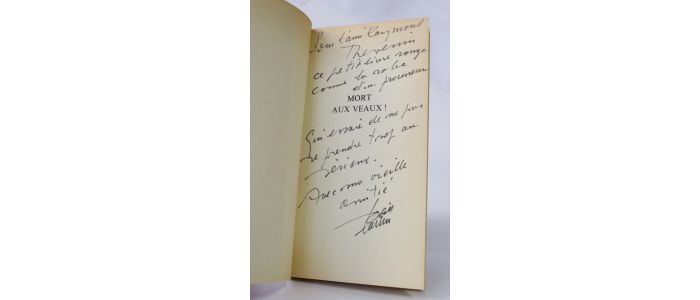 Pour l'ami Raymond
Thévenin
ce petit livre rouge
comme la robe
d'un procureur
MORT
AUX VEAUX !
Qui essaie de ne pas
se prendre trop au
sérieux.
Avec ma vieille
amitié